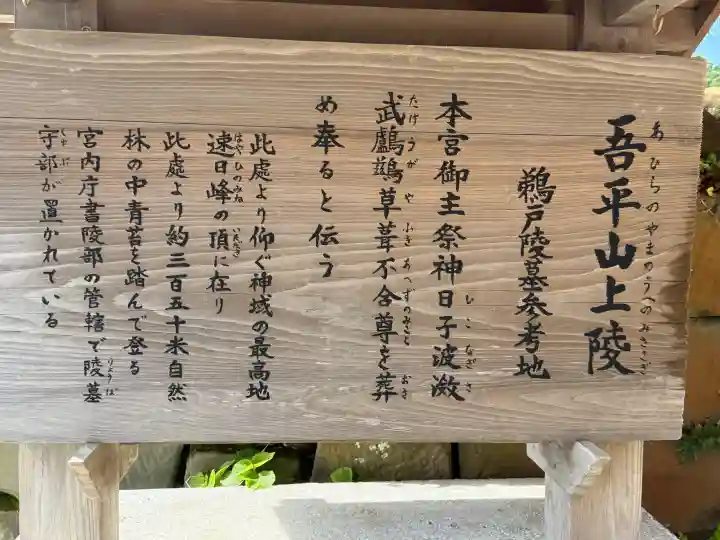 吾平山上陵
あひらのやまのうへのみささぎ
鵜戸陵墓参考地
本宮御主祭神日子波瀲
ひこなぎさ
武鸕鷀草葺不合尊を葬
たけうがやふきあへずのみことおさ
め奉ると伝う
此處より仰ぐ神域の最高地
速日峰の頂に在り
はやひのみねいただき
此處より約三百五十米自然
林の中青苔を踏んで登る
宮内庁書陵部の管轄で陵墓
りょうぼ
守部が置かれている